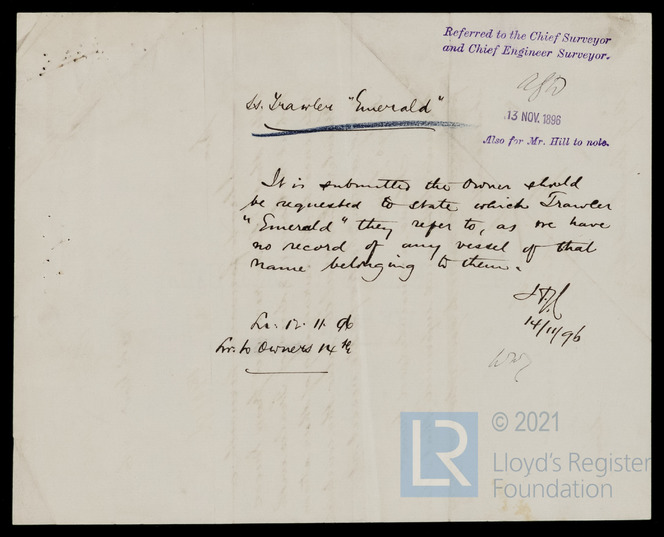 Referred to the Chief Surveyor
and Chief Engineer Surveyor.
13 NOV. 1896
Also for Mr. Hill to note.
Ss. Trawler "Emerald"
It is submitted the Owner should
be requested to state which Trawler
"Emerald" they refer to, as we have
no record of any vessel of that
name belonging to them.
14/11/96
Lr. 12. 11. 96
Lr. to Owners 14th
LR
© 2021
Lloyd's Register
Foundation